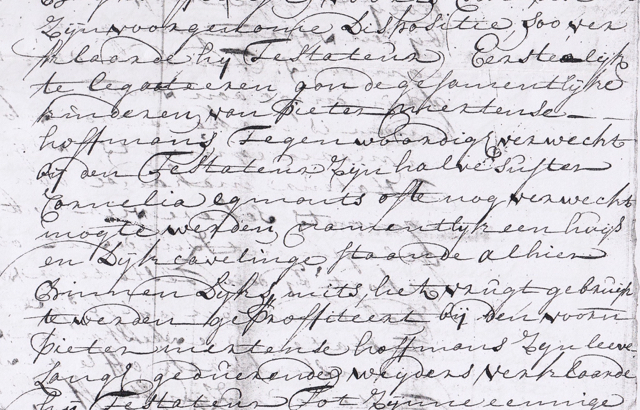 Zijn voorgenome Dispositie, soo ver
klaarde hij Testateur Eerstelijk
te legateeren, aan de gesamentlijke
kinderen van Pieter mertense
hoffmans Tegenwoordig verwecht
bij den Testateur Zijn halve Suster
Cornelia egmonts ofte nog verwecht
mogte werden, namentlijk een huijs
en Dijk cavelinge staande alhier
Binnen Dijks, mits, het vrugt gebruijk
te werden geproffiteert bij den voorn
Pieter mertense hoffmans Zijn leeve
lang geduerende, wijders verklaarde
hij Testateur Tot Zijne eenige